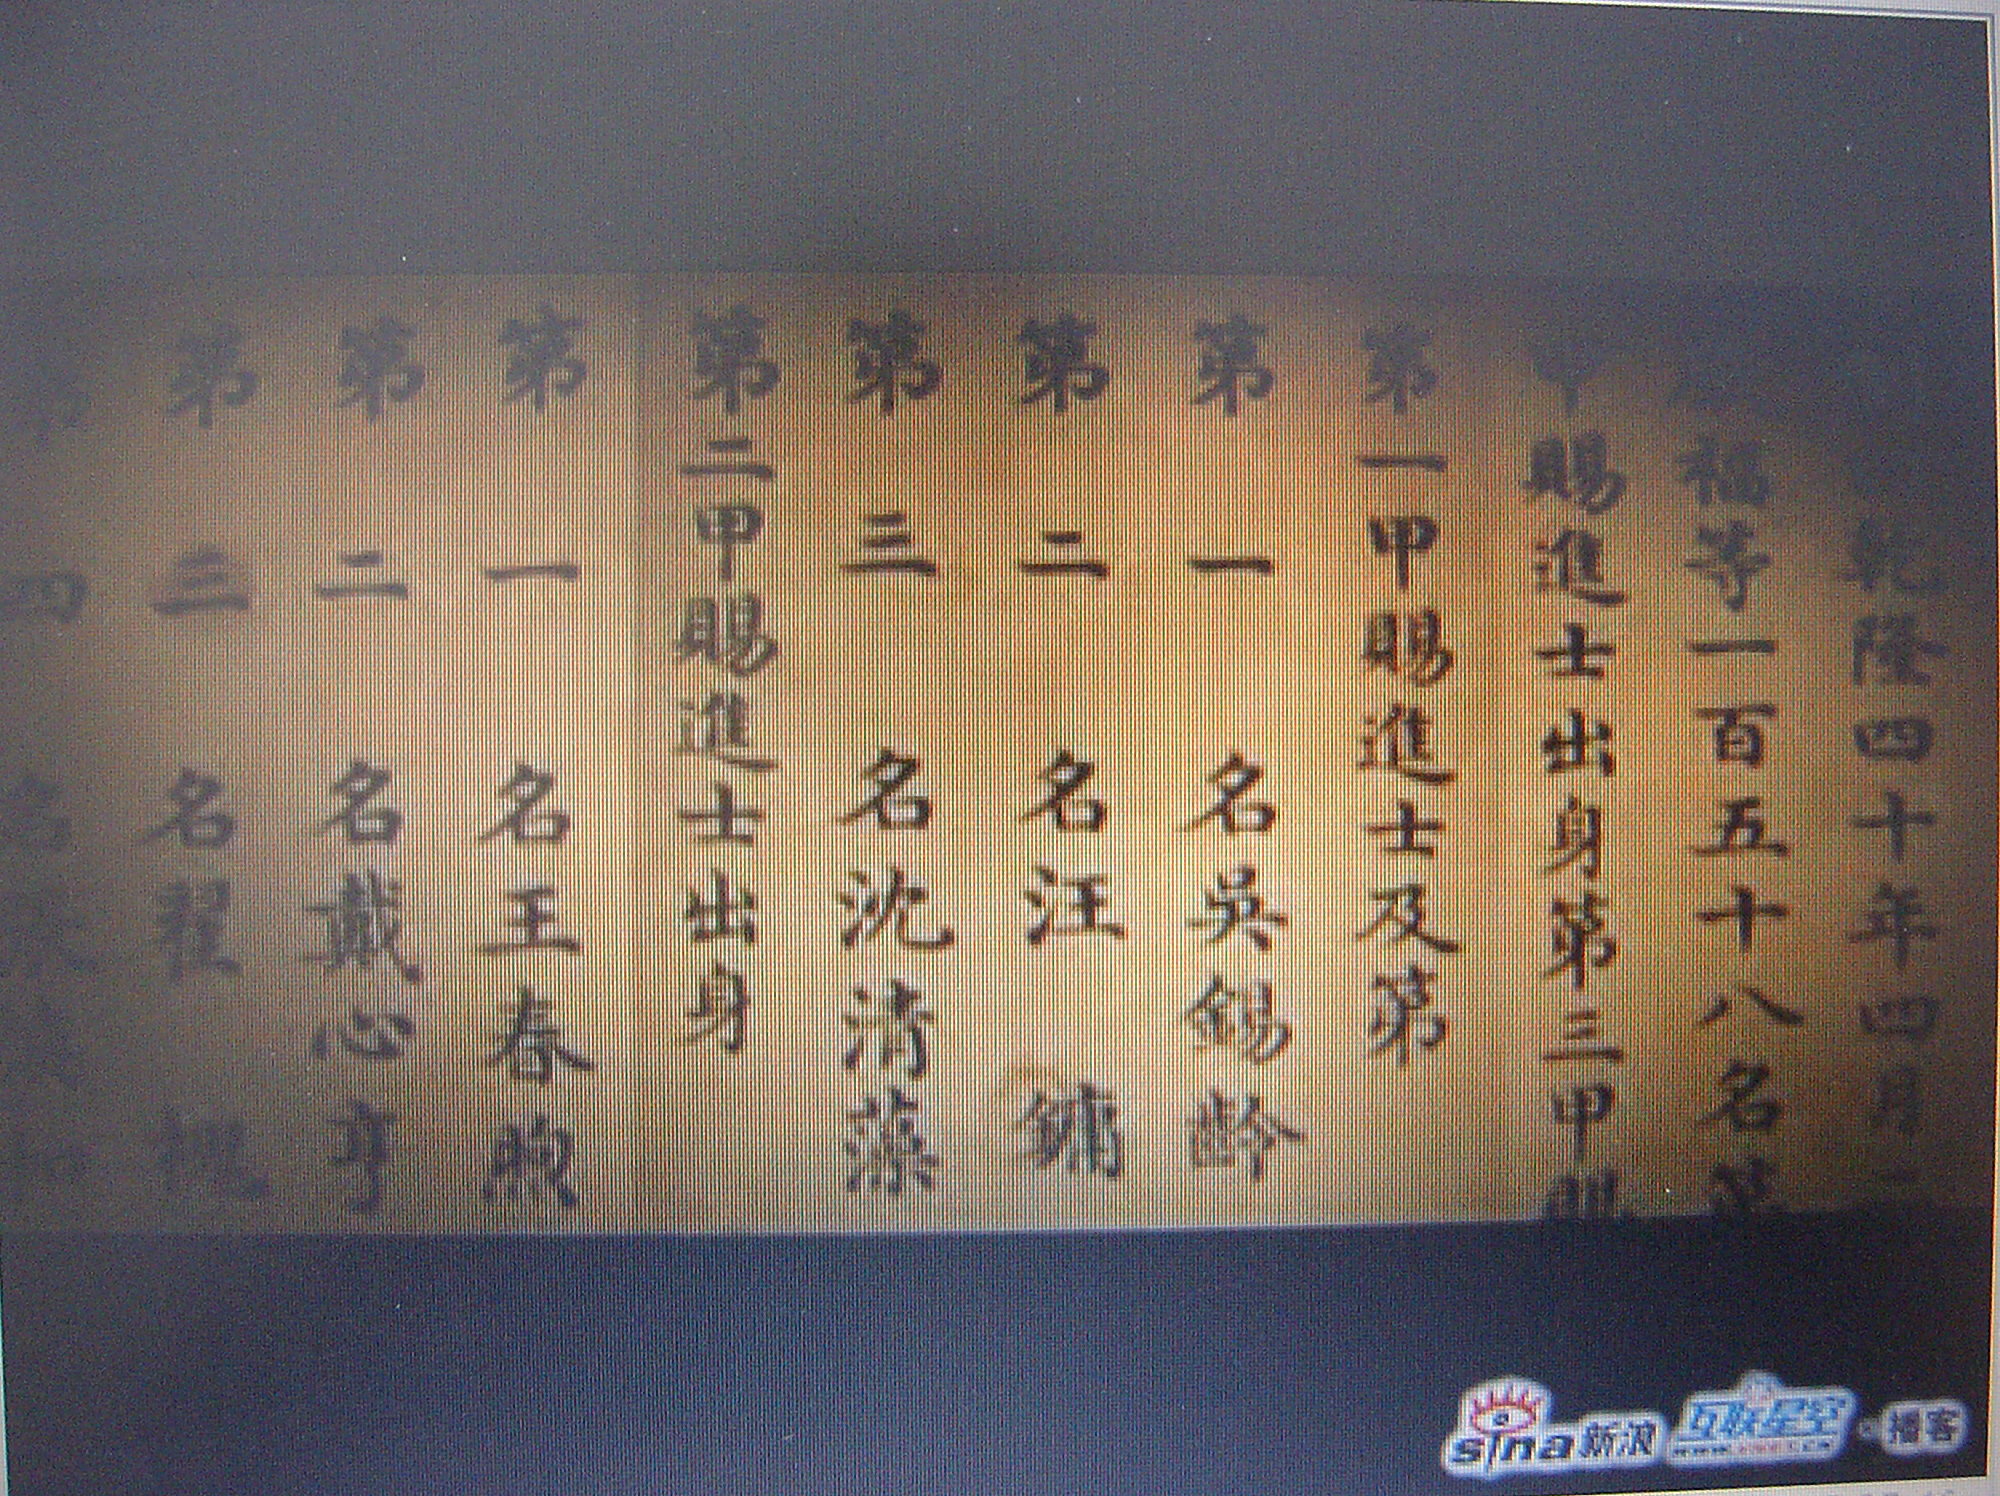 乾隆四十年四月二
福等一百五十八名第
甲賜進士出身第三甲賜
第一甲賜進士及第
第一名吳錫齡
第二名汪鏞
第三名沈清藻
第二甲賜進士出身
第一名王春煦
第二名戴心亨
第三名翟槐
四
sina新浪 互联星空 播客